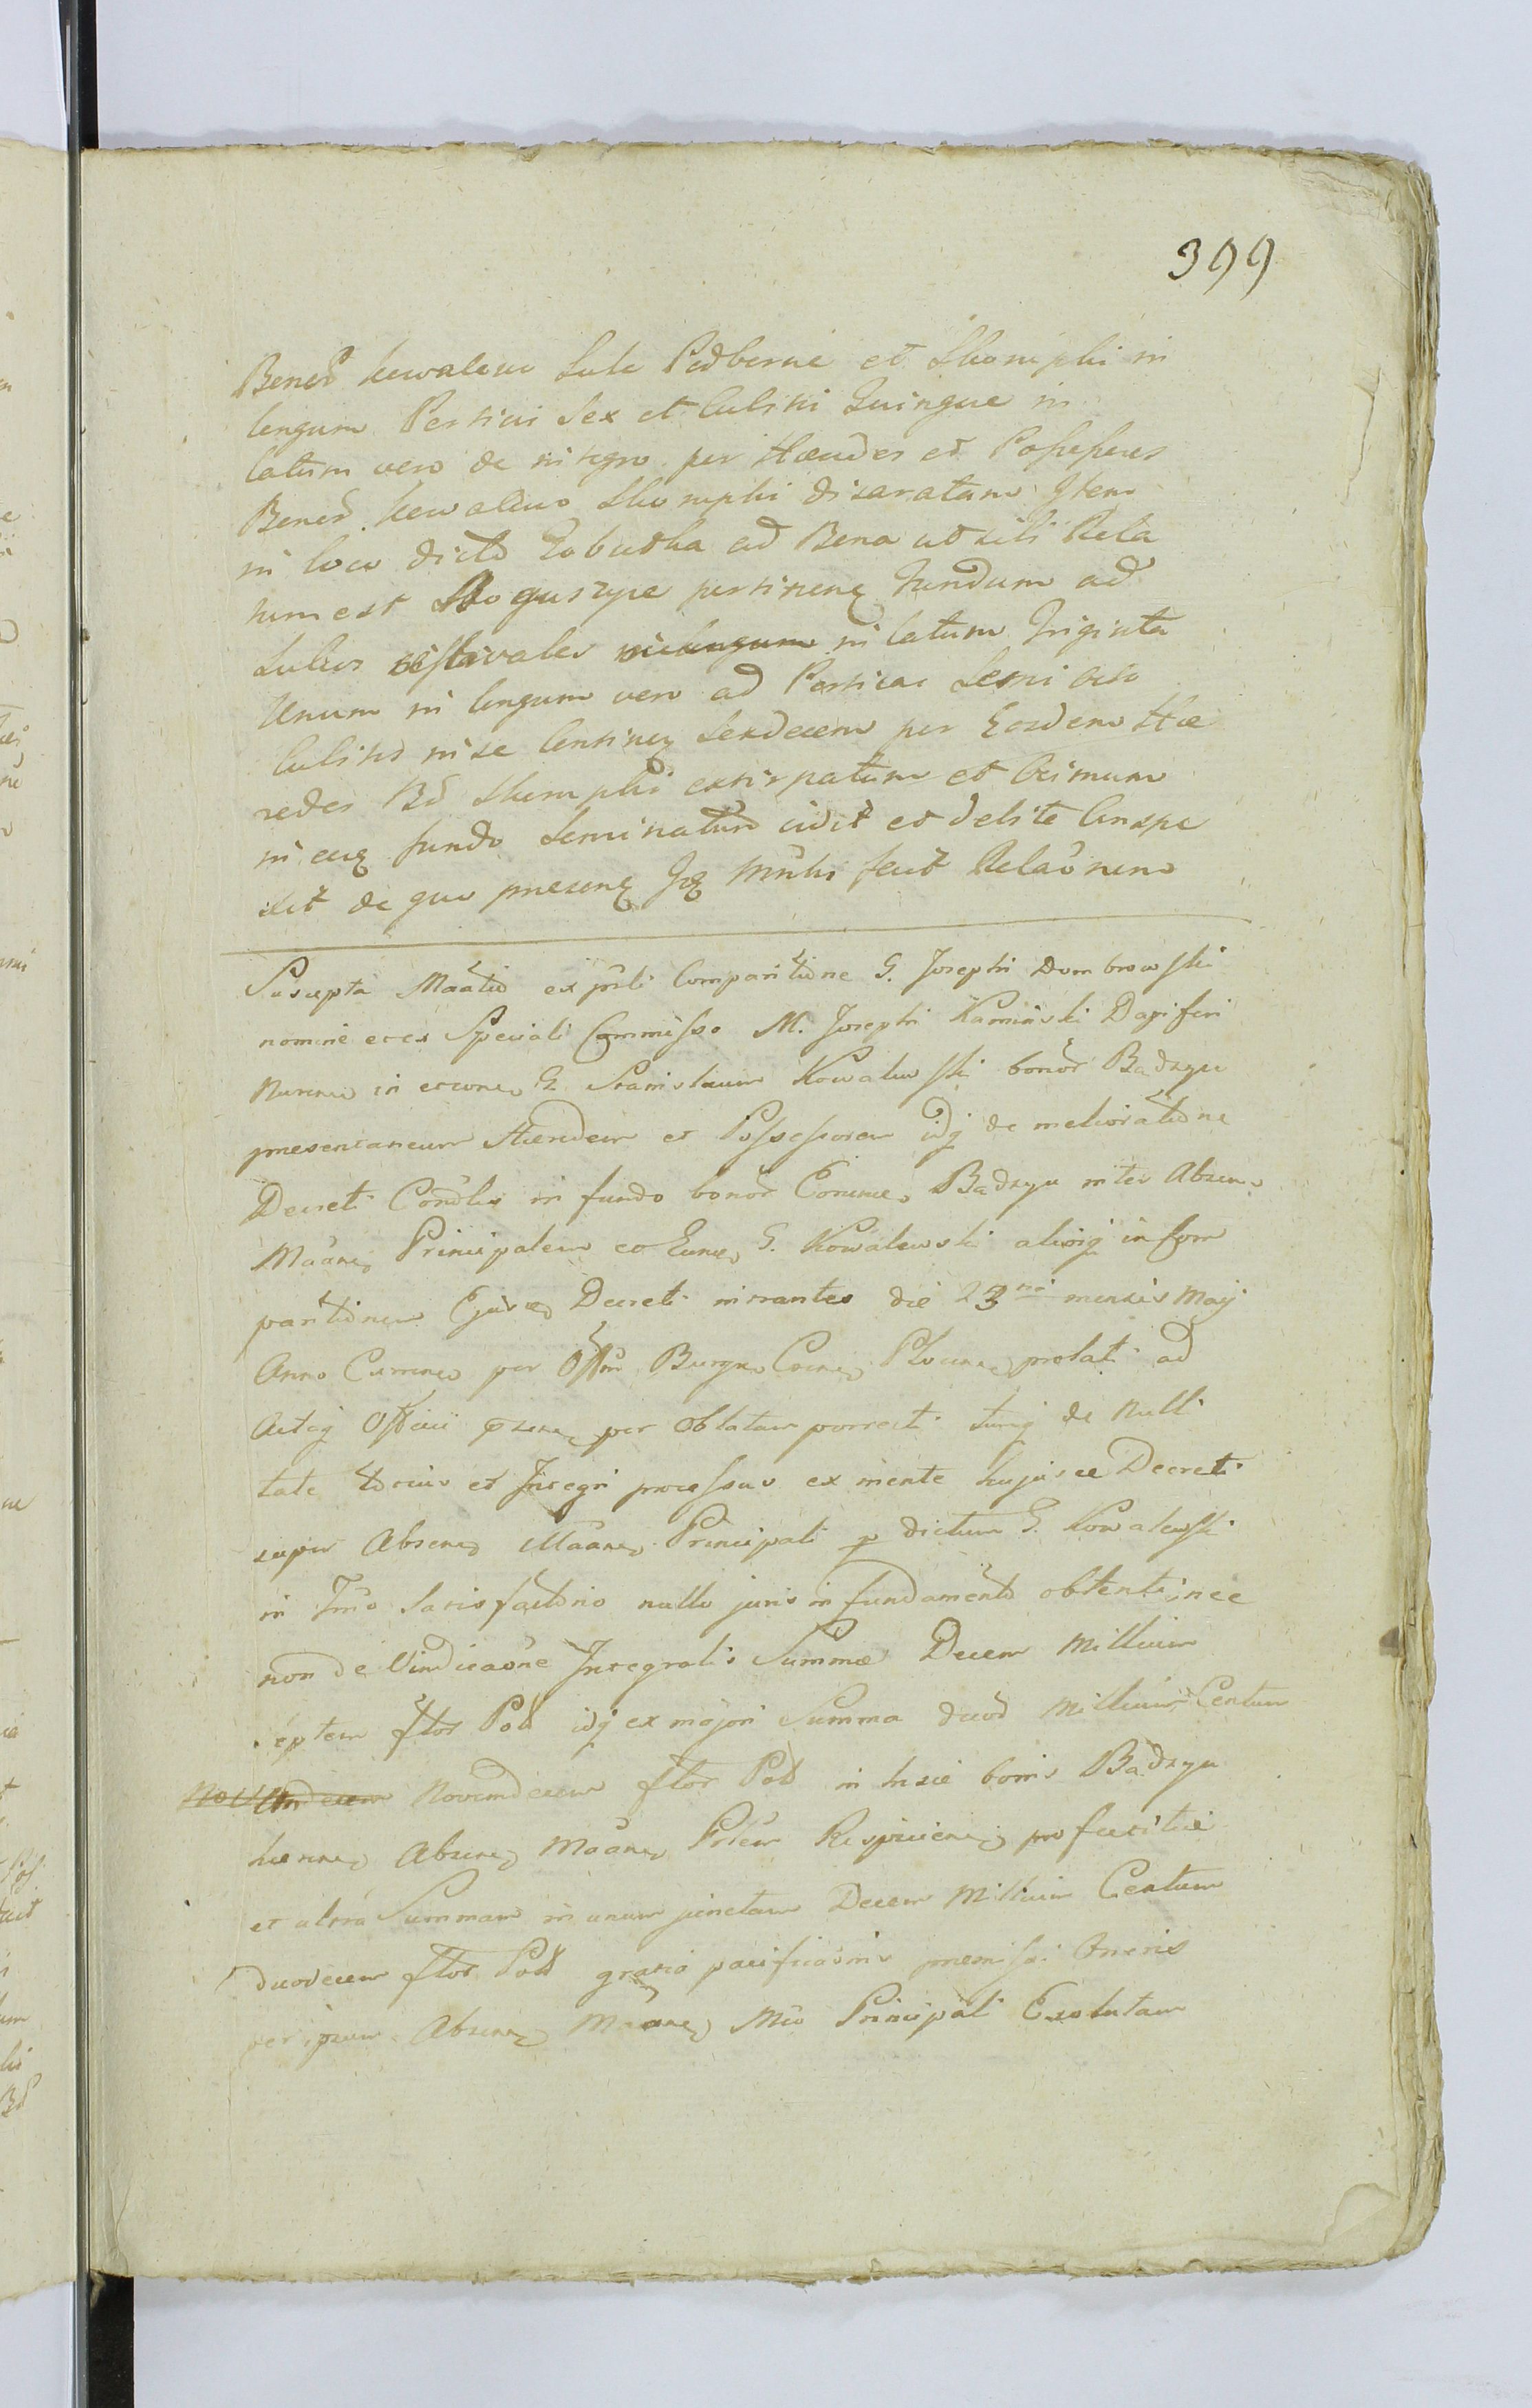 399
Bonor Kowalewo Sulo Podborne et Skorupki in
longum Perticis Sex et Cubitis Quinque in
latum vero de integro per Haeredes et Possessores
Bonor. Kowalewo Skorupki disaratam Item
in loco dicto Zabudka ad Bona uti sibi Rela
tum est Boguszyce pertinen fundum ad
Sulcos aestivales in longum in latum Triginta
Unum in longum vero ad Perticas Semi Octo
Cubitos in se Continen Sexdecem per Eosdem Hae
redes Bo Skorupki extirpatum et Ocimum
in eoq fundo Seminatum vidit et debite Conspe
xit de quo presens Jq Minlis fecit Relaonem
Suscepta Maatio ex prsti Comparitione G. Josephi Dombrowski
nomine et ex Speciali Commisso M. Josephi Kaminski Dapiferi
Nuren in et cone G Stanislaum Kowalewski bonor Bądzyn
presentaneum Haeredem et Possessorem idq de melioratione
Decreti Condles in fundo bonor Eorume Bądzyn inter Absen
Maane Principalem et Eume G. Kowalewski aliosq in fore
paritionem Ejusce Decreti intrantes die 23tia mensis Maij
Anno Curren per Offm Burgr Cone Plocen prolati ad
Actaq Officii prsen per Oblatam porrecti tumq de nulli
tate totius et Integri processus ex mente hujusce Decreti
super Absene Maane Principali p dictum G. Kowalewski
in Tmo Satisfactorio nullo juris in fundamento obtenti; nec
non de Vindicaone Integralis Summae Decem Millium
Septem flor Pol idq ex majori Summa duod Millium Centum
Novemdecem flor Pol in hisce bonis Bądzyn
hunne Absene Maane Prlem Respicien pro fercitui
et ultra Summam in unum junctam Decem Millium Centum
duodecem flor Pol gratia pacificaonis premissi Oneris
per ipsum Absene Maane Meo Principali Exolutam